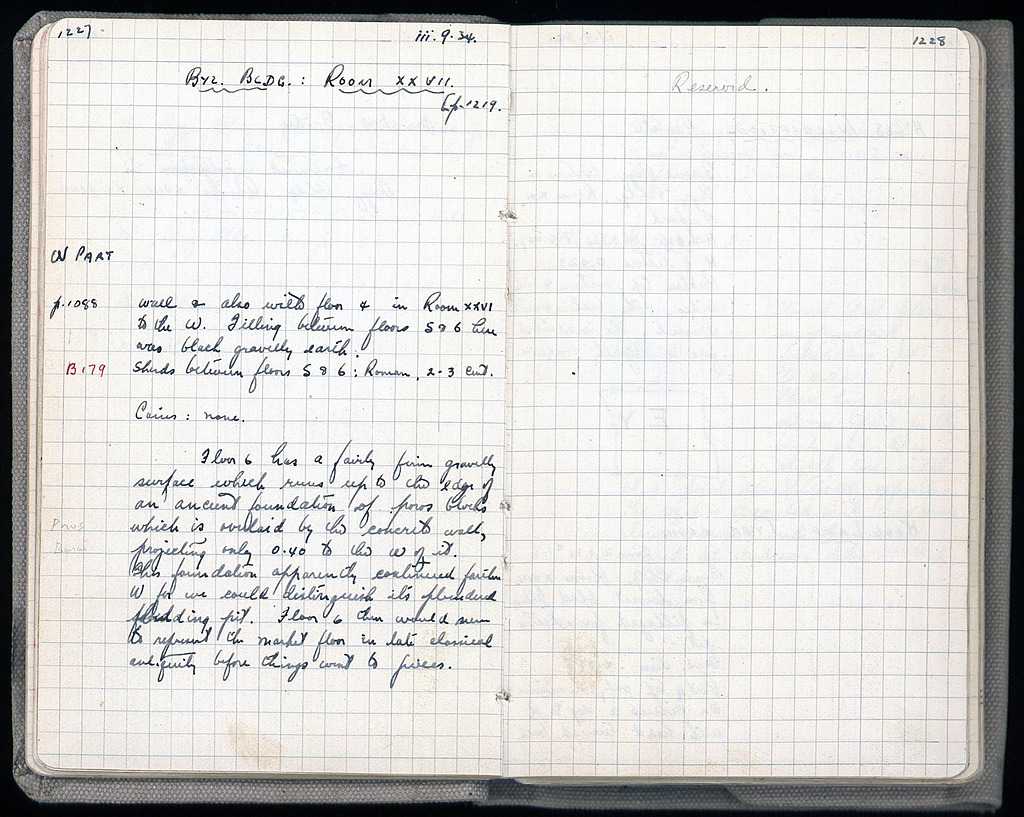 1227
iii.9.34.
Byz. Bldg.: Room XXVII.
Cf. p. 1219.
W Part
p. 1088 wall & also with floor 4 in Room XXVI
to the W. Filling between floors 5 & 6 here
was black gravelly earth.
B179 Sherds between floors 5 & 6: Roman, 2-3 cent.
Coins: none.
Floor 6 has a fairly firm gravelly
surface which runs up to the edge of
an ancient foundation of poros blocks
which is overlaid by the concrete wall,
projecting only 0.40 to the W of it.
This foundation apparently continued farther
W for we could distinguish its plundered
bedding pit. Floor 6 then would seem
to represent the market floor in late classical
antiquity before things went to pieces.
Poros
1228
Reserved.